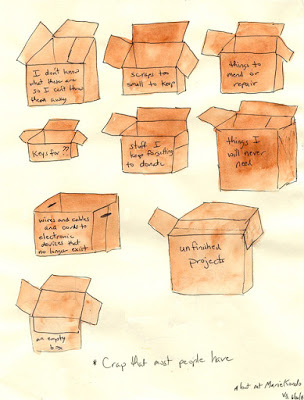 I don't know
what these are
so I can't throw
them away
scraps too
small to keep
things to
mend or
repair
Keys to ??
stuff I
keep forgetting
to donate
things I
will never
need
wires and cables
and cords to
electronic
devices that
no longer exist
unfinished
projects
an empty
box
* Crap that most people have
but not Marie Kondo